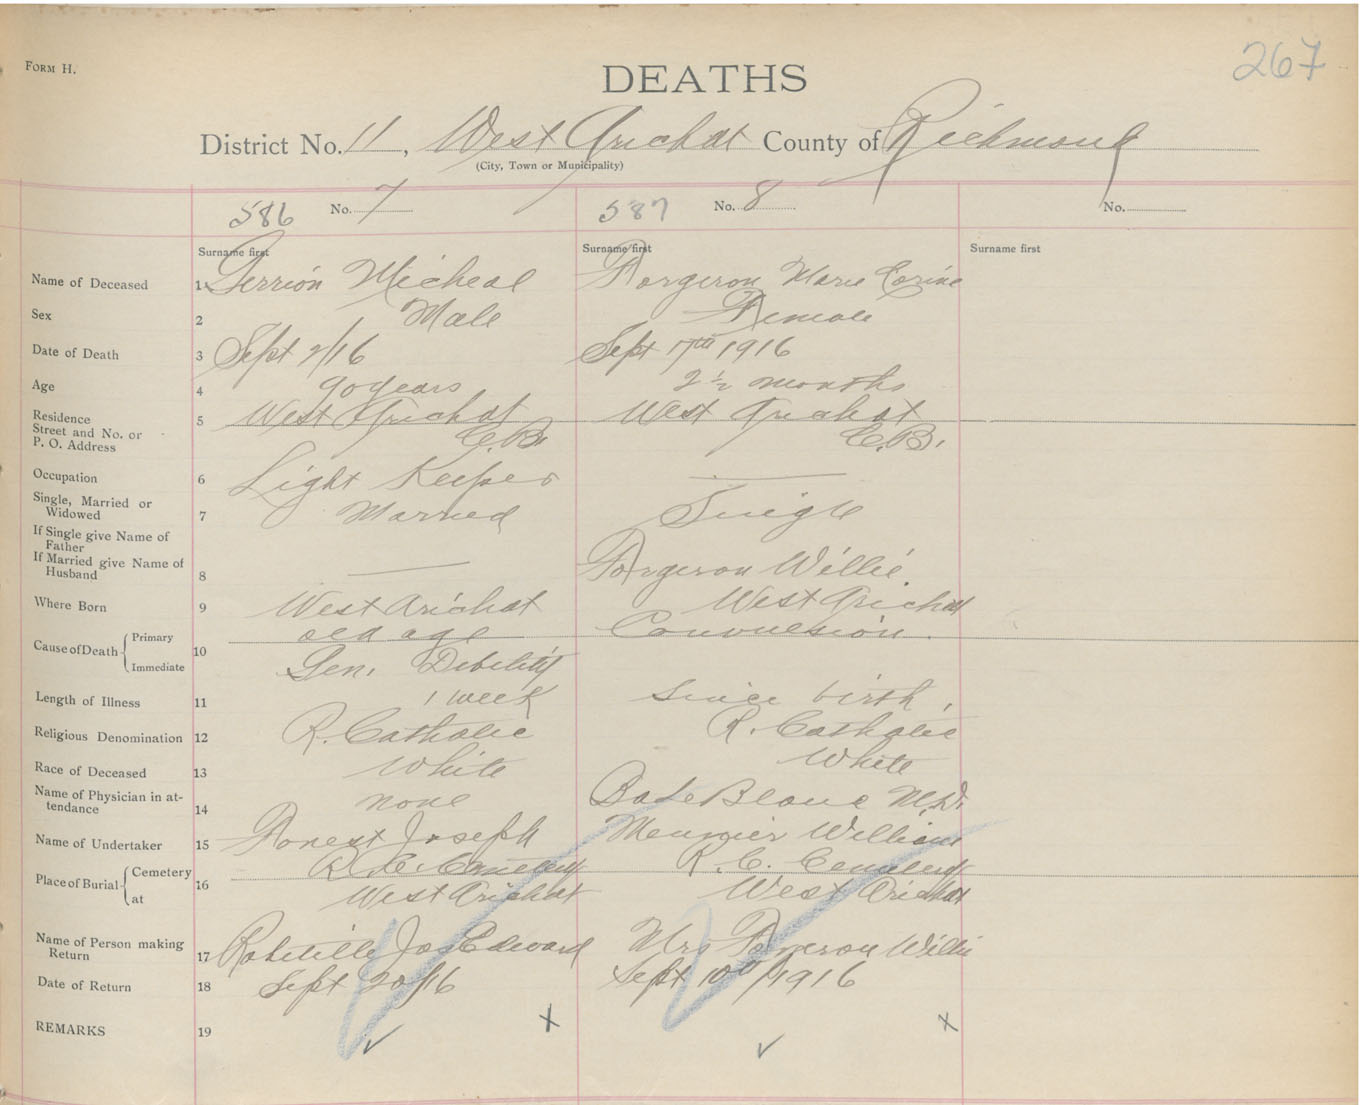 FORM H.
267
DEATHS
District No. 11, West Arichat County of Richmond
(City, Town or Municipality)
586 No. 7
587 No. 8
No.
Surname first
Surname first
Surname first
Name of Deceased 1 Terrion Micheal Forgeron Marie Corine
Sex 2 Male Female
Date of Death 3 Sept 2/16 Sept 17th 1916
Age 4 90 years 2 1/2 months
Residence
Street and No. or
P. O. Address
5 West Arichat West Arichat
C.B. C.B.
Occupation 6 Light Keeper —
Single, Married or
Widowed 7 Married Single
If Single give Name of
Father
If Married give Name of
Husband 8 — Forgeron Willie.
Where Born 9 West Arichat West Arichat
Cause of Death { Primary old age Convulsion.
Immediate 10 Gen. Debility
Length of Illness 11 1 week since birth,
Religious Denomination 12 R. Catholic R. Catholic
Race of Deceased 13 White White
Name of Physician in at-
tendance 14 none Blanc M.D.
Name of Undertaker 15 Forest Joseph William
Place of Burial { Cemetery R. C. Cemetery R. C. Cemetery
at 16 West Arichat West Arichat
Name of Person making
Return 17 Jos Edward Mrs Forgeron Willie
Date of Return 18 Sept 20/16 Sept 10th/1916
REMARKS 19 x x